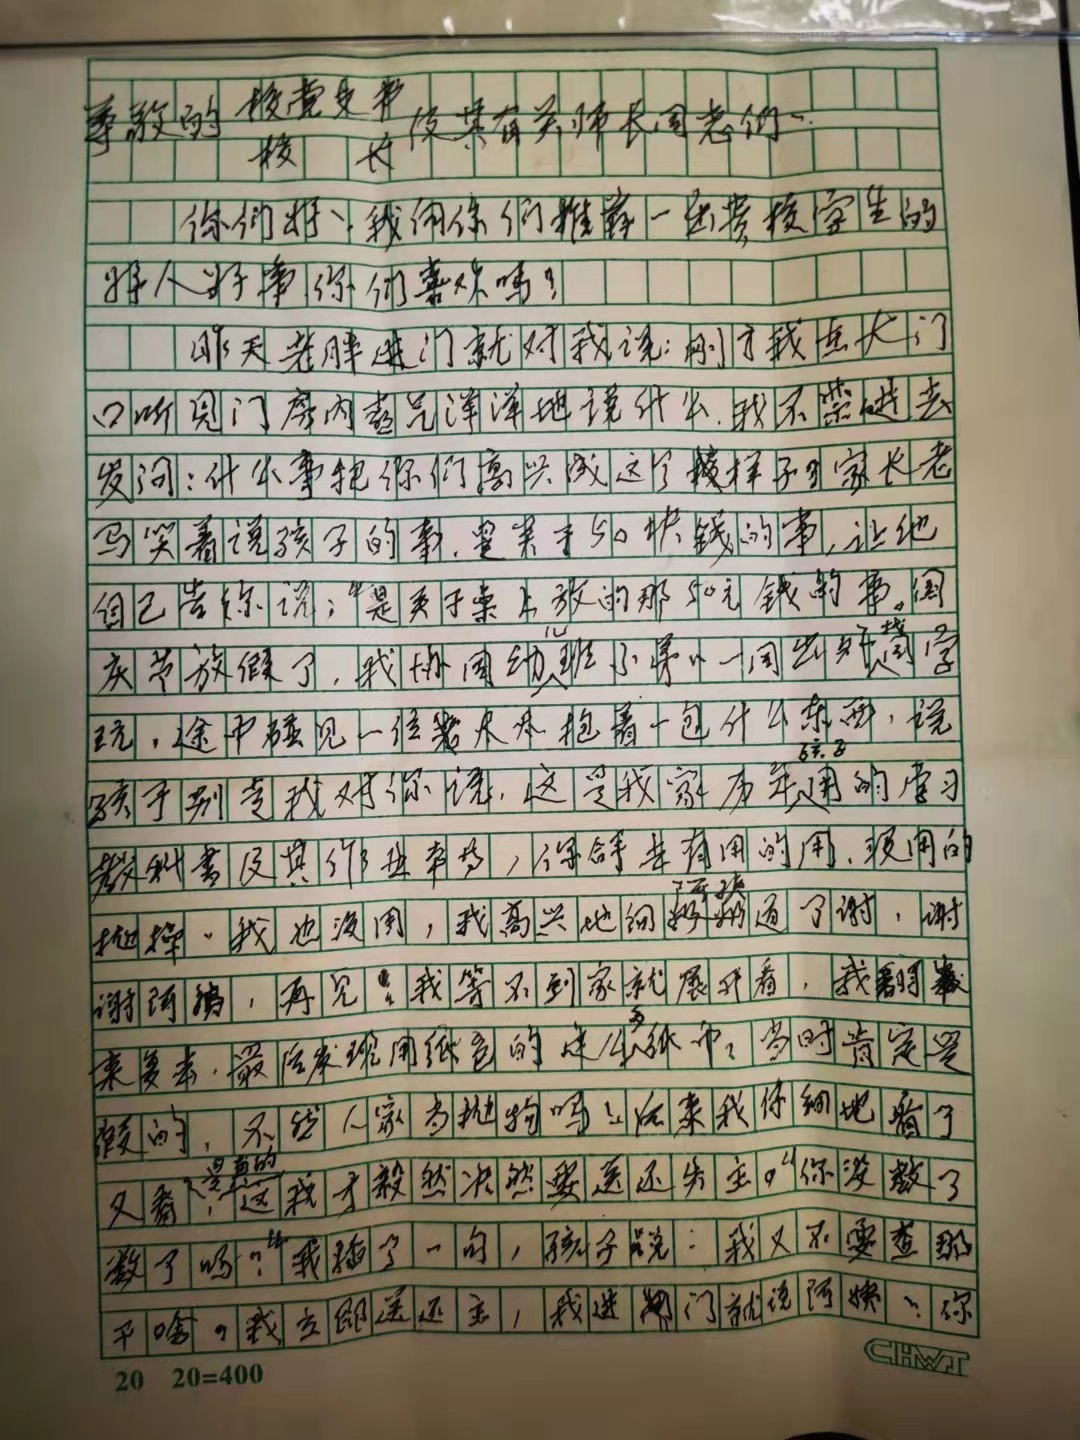 尊敬的 校党支书
校 长 及其有关师长同志们：
你们好、我向你们推荐一齿贵校学生的
好人好事你们喜欢吗？
昨天老胖进门就对我说：刚才我在大门
口听见门房内喜兄洋洋地说什么.我不禁进去
发问：什么事把你们高兴成这个样子？家长老
马笑着说孩子的事.是关于50块钱的事,让他
自己告你说："是关于桌上放的那50元钱的事。国
庆节放假了,我协同幼儿班小 一同出外找同学
玩,途中碰见一位老太太抱着一包什么东西,说
孩子别走我对你说,这是我家历年孩子用的学习
教科书及其作业本等,你合乎有用的用.没用的
抛掉。我也没用,我高兴地向阿姨道了谢,谢
谢阿姨,再见！我等不到家就展开看,我翻来
来复去,最后发现用纸包的 纸币？当时肯定是
假的,不然人家当抛物吗？后来我仔细地看了
又看是真的,这我才毅然决然要送还失主。"你没数了
数了吗？"我插了一句,孩子说：我又不要查那
干啥。我立即送还主,我进那门就说阿姨：你
20 20=400
CHWT